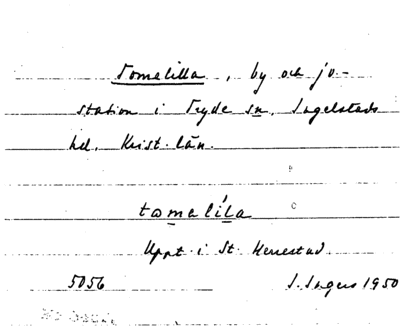 Tomelilla, by och jv-
station i Tryde sn, Ingelstads
hd, Krist. län.
tomelíla
Uppt i St. Herrestad
5056 I. Ingers 1950